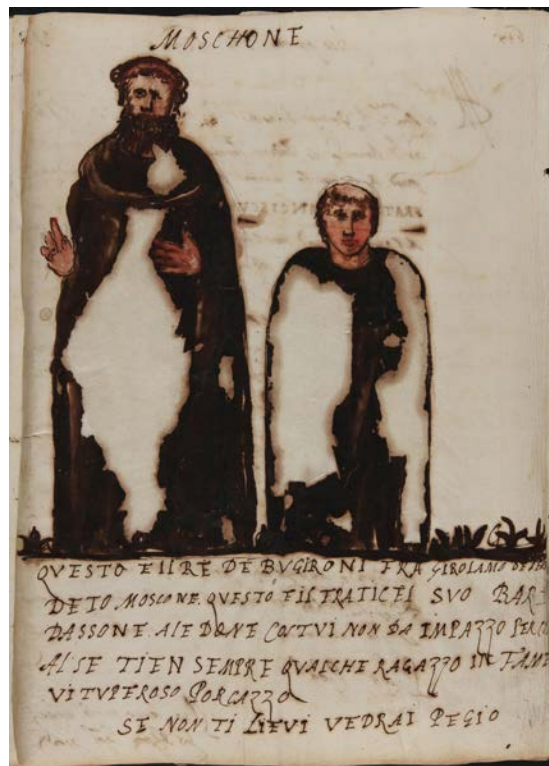 MOSCHONE
QVESTO E IL RE DE BVGIRONI FRA GIROLAMO
DETO MOSCONE. QVESTO E IL FRATICEL SVO BAR
DASSONE. ALE DONE COSTVI NON DA IMPAZZO PERCH
AL SE TIEN SEMPRE QVALCHE RAGAZZO IN
VITVPEROSO PORCAZZO
SE NON TI LIEVI VEDRAI PEGIO